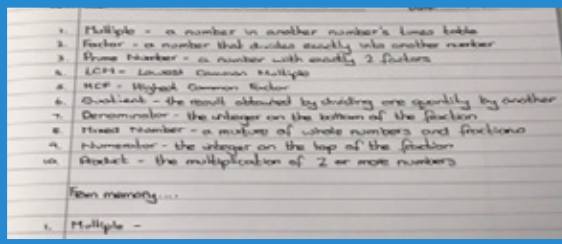 1. Multiple - a number in another number's times table
2. Factor - a number that divides exactly into another number
3. Prime Number - a number with exactly 2 factors
4. LCM - Lowest Common Multiple
5. HCF - Highest Common Factor
6. Quotient - the result obtained by dividing one quantity by another
7. Denominator - the integer on the bottom of the fraction
8. Mixed Number - a mixture of whole numbers and fractions
9. Numerator - the integer on the top of the fraction
10. Product - the multiplication of 2 or more numbers
From memory....
1. Multiple -